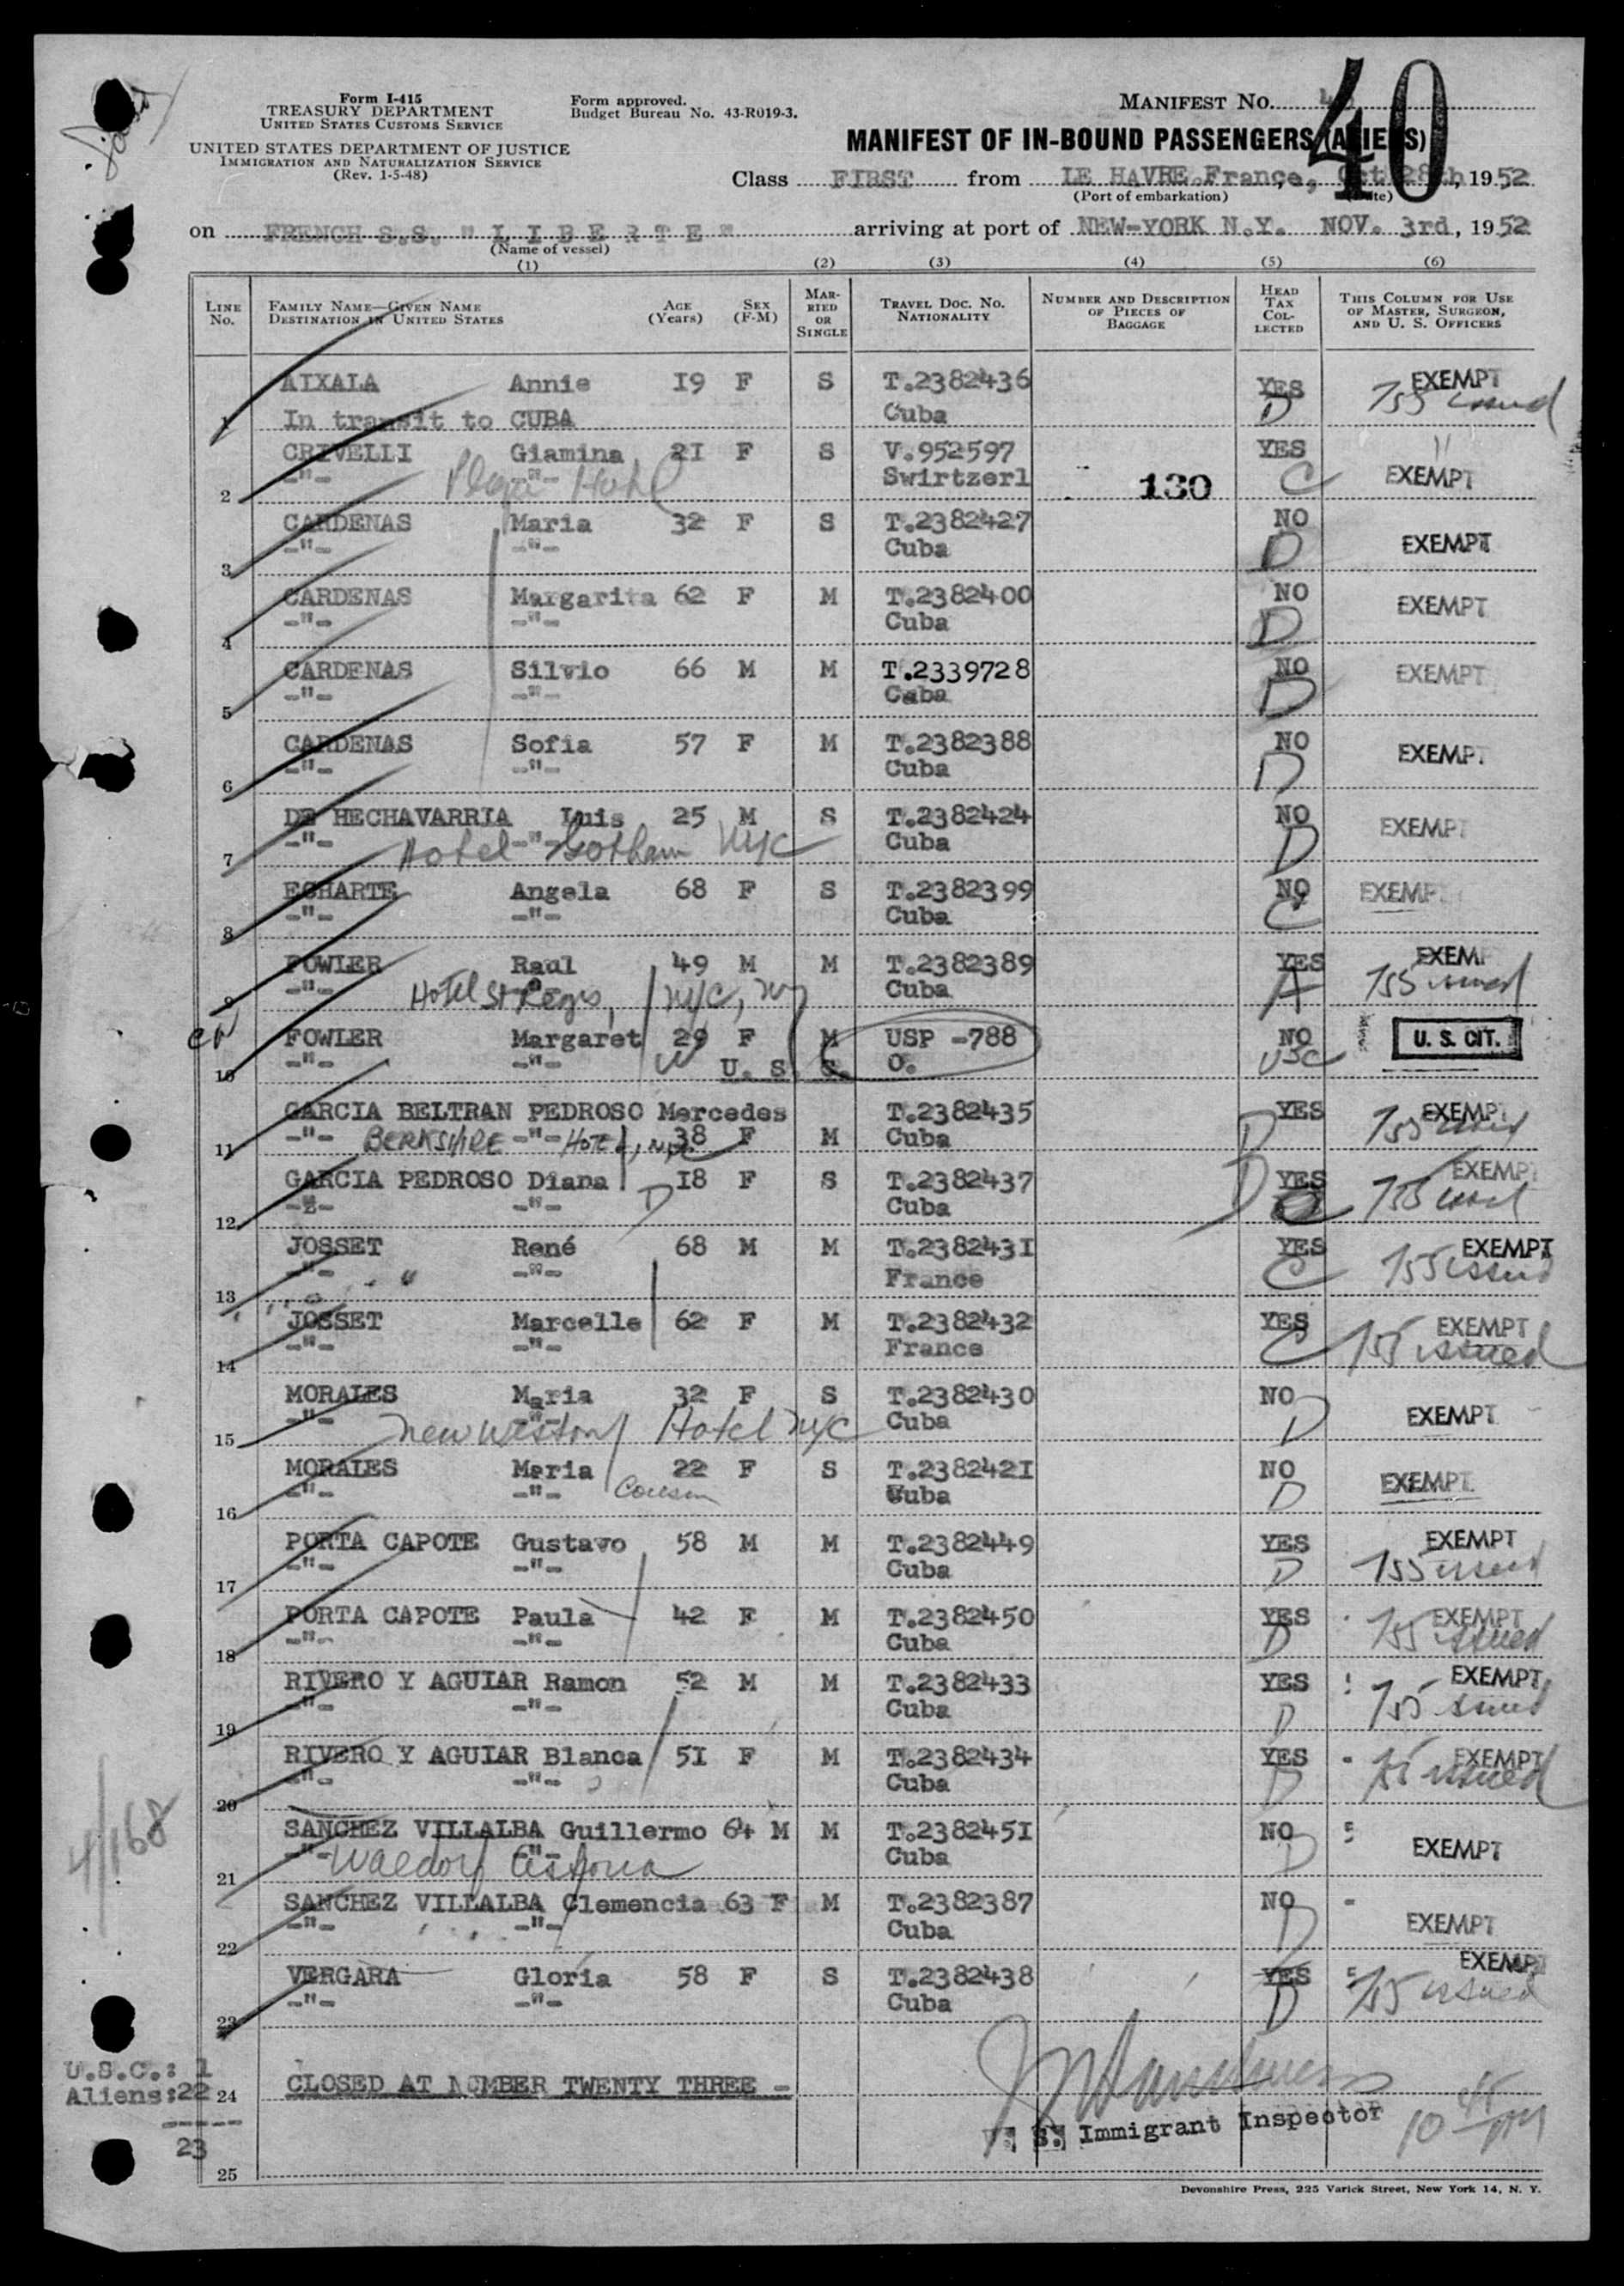 Form I-415
TREASURY DEPARTMENT
UNITED STATES CUSTOMS SERVICE
UNITED STATES DEPARTMENT OF JUSTICE
IMMIGRATION AND NATURALIZATION SERVICE
(Rev. 1-5-48)
Form approved.
Budget Bureau No. 43-R019-3.
MANIFEST NO.
40
MANIFEST OF IN-BOUND PASSENGERS (ALIENS)
Class FIRST from LE HAVRE France, Oct 28th, 1952
(Port of embarkation) (Date)
on FRENCH S.S. "LIBERTE" arriving at port of NEW-YORK N.Y. NOV. 3rd, 1952
(Name of vessel)
(1) (2) (3) (4) (5) (6)
LINE No. FAMILY NAME—GIVEN NAME DESTINATION IN UNITED STATES AGE (Years) SEX (F-M) MARRIED OR SINGLE TRAVEL DOC. NO. NATIONALITY NUMBER AND DESCRIPTION OF PIECES OF BAGGAGE HEAD TAX COLLECTED THIS COLUMN FOR USE OF MASTER, SURGEON, AND U. S. OFFICERS
AIXALA Annie 19 F S T.2382436 YES EXEMPT
1 In transit to CUBA Cuba D 155 issued
CRIVELLI Giamina 21 F S V.952597 YES "
2 -"- Plaza Hotel -"- Swirtzerl 130 C EXEMPT
CARDENAS Maria 32 F S T.2382427 NO
3 -"- -"- Cuba D EXEMPT
CARDENAS Margarita 62 F M T.2382400 NO
4 -"- -"- Cuba D EXEMPT
CARDENAS Silvio 66 M M T.2339728 NO
5 -"- -"- Cuba D EXEMPT
CARDENAS Sofia 57 F M T.2382388 NO
6 -"- -"- Cuba D EXEMPT
DE HECHAVARRIA Luis 25 M S T.2382424 NO
7 -"- Hotel -"- Gotham NYC Cuba D EXEMPT
ECHARTE Angela 68 F S T.2382399 NO
8 -"- -"- Cuba C EXEMPT
FOWLER Raul 49 M M T.2382389 YES EXEMP
9 -"- Hotel St Regis, NYC, NY Cuba A 155 issued
FOWLER Margaret 29 F M USP -788 NO U. S. CIT.
10 -"- -"- U. S. C. 0. USC
GARCIA BELTRAN PEDROSO Mercedes T.2382435 YES EXEMPT
11 -"- BERKSHIRE -"- HOTEL, NYC 38 F M Cuba D 155 issued
GARCIA PEDROSO Diana 18 F S T.2382437 YES EXEMPT
12 -"- -"- D Cuba D 155 issued
JOSSET René 68 M M T.2382431 YES EXEMPT
13 -"- -"- France C 155 issued
JOSSET Marcelle 62 F M T.2382432 YES EXEMPT
14 -"- -"- France C 155 issued
MORALES Maria 32 F S T.2382430 NO
15 -"- New Weston Hotel NYC Cuba D EXEMPT
MORALES Maria 22 F S T.2382421 NO
16 -"- -"- Cousin Cuba D EXEMPT
PORTA CAPOTE Gustavo 58 M M T.2382449 YES EXEMPT
17 -"- -"- Cuba D 155 issued
PORTA CAPOTE Paula 42 F M T.2382450 YES EXEMPT
18 -"- -"- Cuba D 155 issued
RIVERO Y AGUIAR Ramon 52 M M T.2382433 YES EXEMPT
19 -"- -"- Cuba D 155 issued
RIVERO Y AGUIAR Blanca 51 F M T.2382434 YES EXEMPT
20 -"- -"- Cuba D 155 issued
SANCHEZ VILLALBA Guillermo 64 M M T.2382451 NO
21 -"- Waldorf Astoria Cuba D EXEMPT
SANCHEZ VILLALBA Clemencia 63 F M T.2382387 NO
22 -"- -"- Cuba D EXEMPT
VERGARA Gloria 58 F S T.2382438 YES EXEMPT
23 -"- -"- Cuba D 155 issued
4/168
U.S.C.: 1
Aliens:22
-----
23
24 CLOSED AT NUMBER TWENTY THREE -
U. S. Immigrant Inspector
10 45 PM
25
Devonshire Press, 225 Varick Street, New York 14, N. Y.